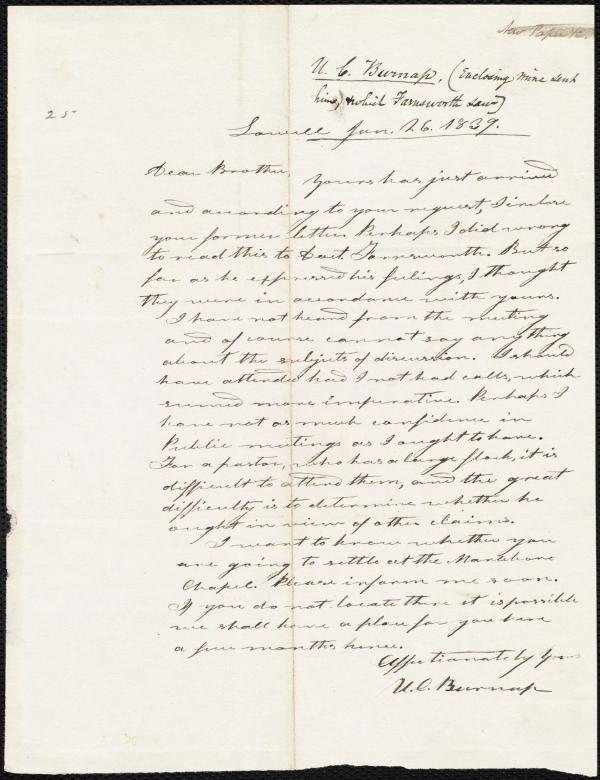 New Paper &c.
U. C. Burnap, (Enclosing mine sent
him, & which Farnsworth saw)
25
Lowell Jan. 26. 1839.
Dear Brother,
Yours has just arrived
and according to your request, I inclose
your former letter. Perhaps I did wrong
to read this to Doct. Farnsworth. But so
far as he expressed his feelings, I thought
they were in accordance with yours.
I have not heard from the meeting
and of course cannot say anything
about the subjects of discussion. I should
have attended had I not had calls, which
seemed more imperative. Perhaps I
have not as much confidence in
Public meetings as I ought to have.
For a pastor, who has a large flock, it is
difficult to attend them, and the great
difficulty is to determine whether he
ought in view of other claims.
I want to know whether you
are going to settle at the Marlboro
Chapel. Please inform me soon.
If you do not locate there it is possible
we shall have a place for you here
a few months hence.
Affectionately Yours
U. C. Burnap